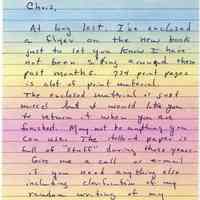 Chris,
At long last. I've enclosed
a flyer on the new book
just to let you know I have
not been sitting around these
past months. 734 print pages
is alot of print material.
The enclosed material is just
but I would like you
to return it when you are
finished. May not be anything you
can use. The folder paper is
full of "stuff" during those years.
Give me a call or e-mail
if you need anything else
including clarification of my
random writing of my